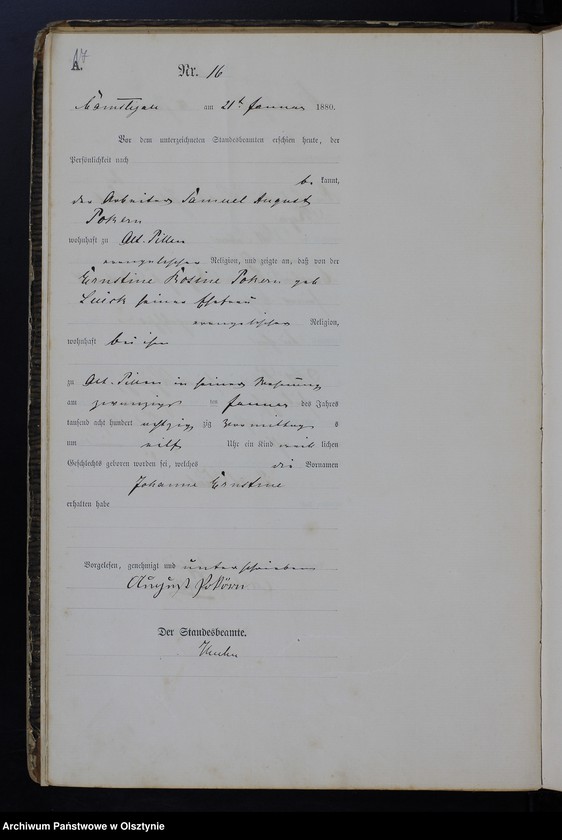 17
A.
Nr. 16
am 21t Januar 1880.
Vor dem unterzeichneten Standesbeamten erschien heute, der
Persönlichkeit nach
be kannt,
der Arbeiter Samuel August
Pokern
wohnhaft zu Alt-Pillau
evangelischer Religion, und zeigte an, daß von der
Ernstine Rosine Pokern geb
seiner Ehefrau
evangelischer Religion,
wohnhaft bei ihm
zu Alt-Pillau in seiner Wohnung
am zwanzigst en Januar des Jahres
tausend acht hundert achtzig zig Vormittag s
um eilf Uhr ein Kind weib lichen
Geschlechts geboren worden sei, welches die Vornamen
Johanne Ernstine
erhalten habe
Vorgelesen, genehmigt und unterschrieben
August Pokörn
Der Standesbeamte.
Archiwum Państwowe w Olsztynie